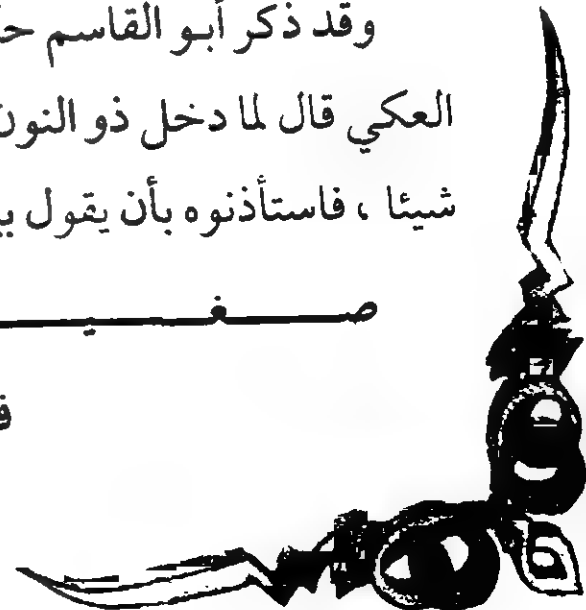 وقد ذكر أبو القاسم
العكي قال لما دخل ذو النون
شيئا ، فاستأذنوه بأن يقول
صغير